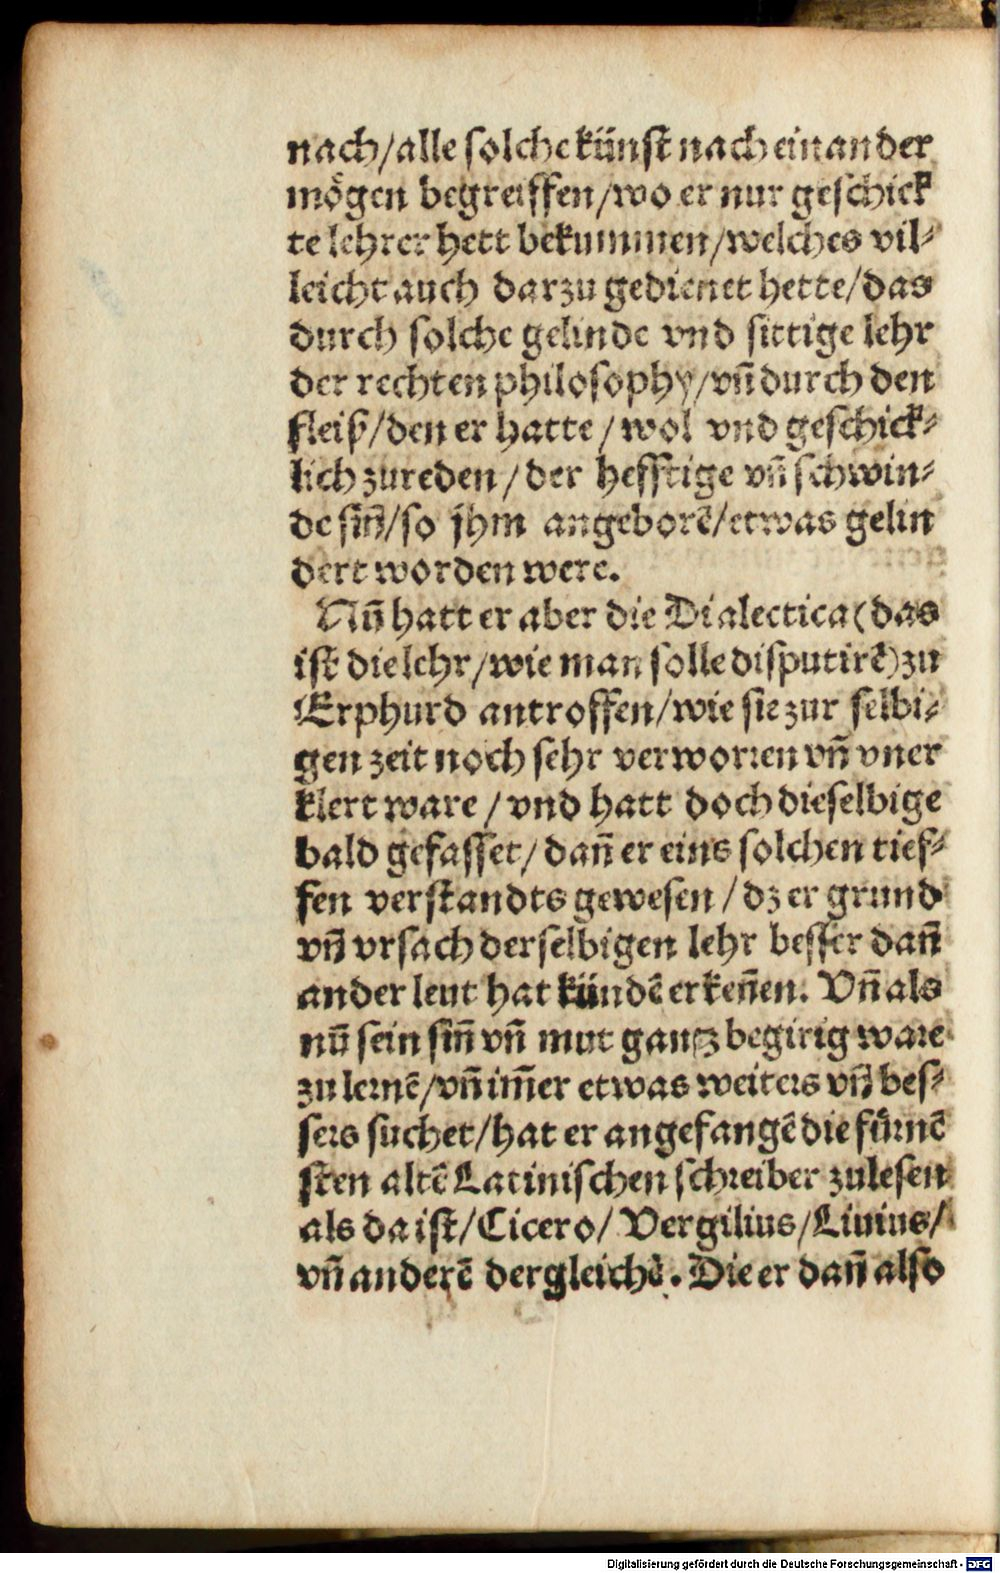 nach/alle solche künst nach einander
mögen begreiffen/wo er nur geschick
te lehrer hett bekummen/welches vil⸗
leicht auch darzu gedienet hette/das
durch solche gelinde vnd sittige lehr
der rechten philosophy/vñ durch den
fleiß/den er hatte/wol vnd geschick⸗
lich zureden/der hefftige vñ schwin⸗
de siñ/so jhm angeborẽ/etwas gelin
dert worden were.
Nũ hatt er aber die Dialectica(das
ist die lehr/wie man solle disputirẽ)zu
Erphurd antroffen/wie sie zur selbi⸗
gen zeit noch sehr verworren vñ vner
klert ware/vnd hatt doch dieselbige
bald gefasset/dañ er eins solchen tief⸗
fen verstandts gewesen/dz er grund
vñ vrsach derselbigen lehr besser dañ
ander leut hat kündẽ erkeñen. Vñ als
nũ sein siñ vñ mut gantz begirig ware
zu lernẽ/vñ im̃er etwas weiters vñ bes⸗
sers suchet/hat er angefangẽ die fürnẽ
sten altẽ Latinischen schreiber zulesen
als da ist/Cicero/Vergilius/Liuius/
vñ anderẽ dergleichẽ. Die er dañ also
Digitalisierung gefördert durch die Deutsche Forschungsgemeinschaft - DFG